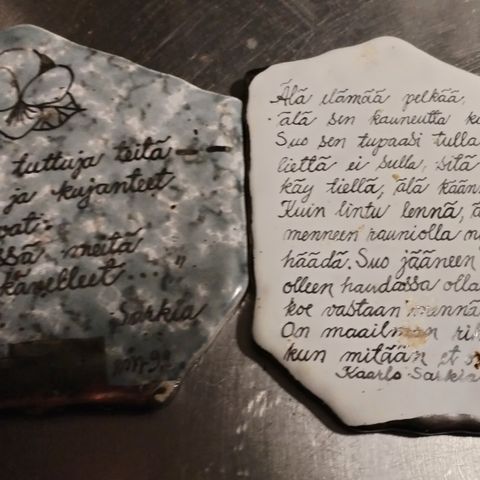 tuttuja teitä
ja kujanteet
meitä
kävelleet..."
Sarkia
Älä elämää pelkää,
älä sen kauneutta
Suo sen tupaasi tulla
liettä ei sulla, sitä
käy tiellä, älä
Kuin lintu lennä,
menneen rauniolla
häädä. Suo jääneen
olleen haudassa olla
koe vastaan mennä
On maailman
kun mitään et
Kaarlo Sarkia